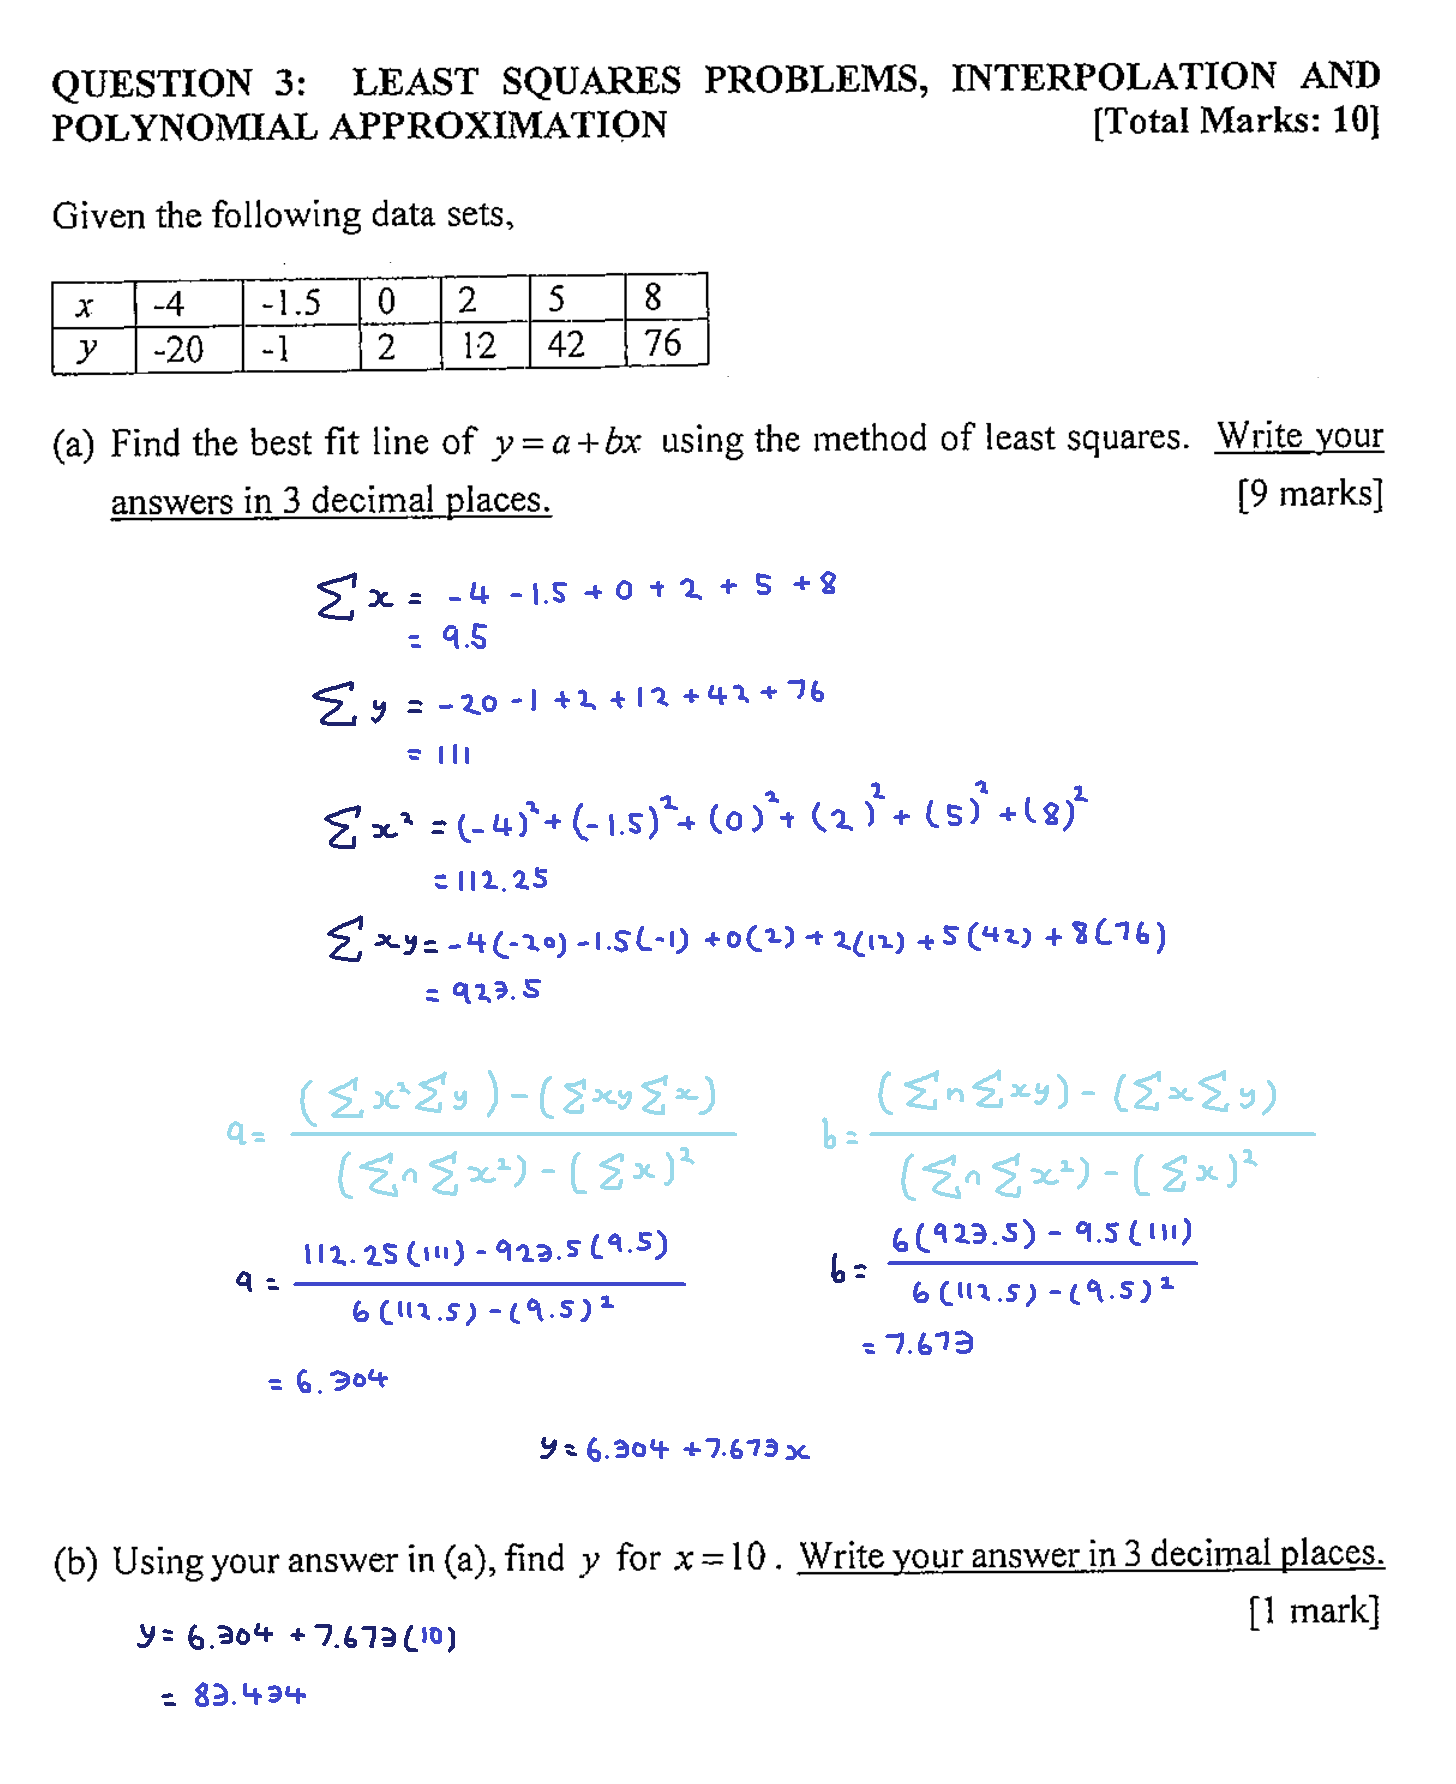 QUESTION 3: LEAST SQUARES PROBLEMS, INTERPOLATION AND
POLYNOMIAL APPROXIMATION [Total Marks: 10]
Given the following data sets,
x -4 -1.5 0 2 5 8
y -20 -1 2 12 42 76
(a) Find the best fit line of y = a + bx using the method of least squares. Write your
answers in 3 decimal places. [9 marks]
∑x = -4 -1.5 + 0 + 2 + 5 + 8
= 9.5
∑y = -20 -1 +2 +12 +42 +76
= 111
∑x² = (-4)² + (-1.5)² + (0)² + (2)² + (5)² + (8)²
= 112.25
∑xy = -4(-20) -1.5(-1) +0(2) + 2(12) +5(42) + 8(76)
= 923.5
a = ((∑x²∑y) - (∑xy∑x)) / ((∑n∑x²) - (∑x)²) b = ((∑n∑xy) - (∑x∑y)) / ((∑n∑x²) - (∑x)²)
a = (112.25(111) - 923.5(9.5)) / (6(112.5) - (9.5)²) b = (6(923.5) - 9.5(111)) / (6(112.5) - (9.5)²)
= 6.304 = 7.673
y = 6.304 + 7.673x
(b) Using your answer in (a), find y for x = 10. Write your answer in 3 decimal places.
[1 mark]
y = 6.304 + 7.673(10)
= 83.434